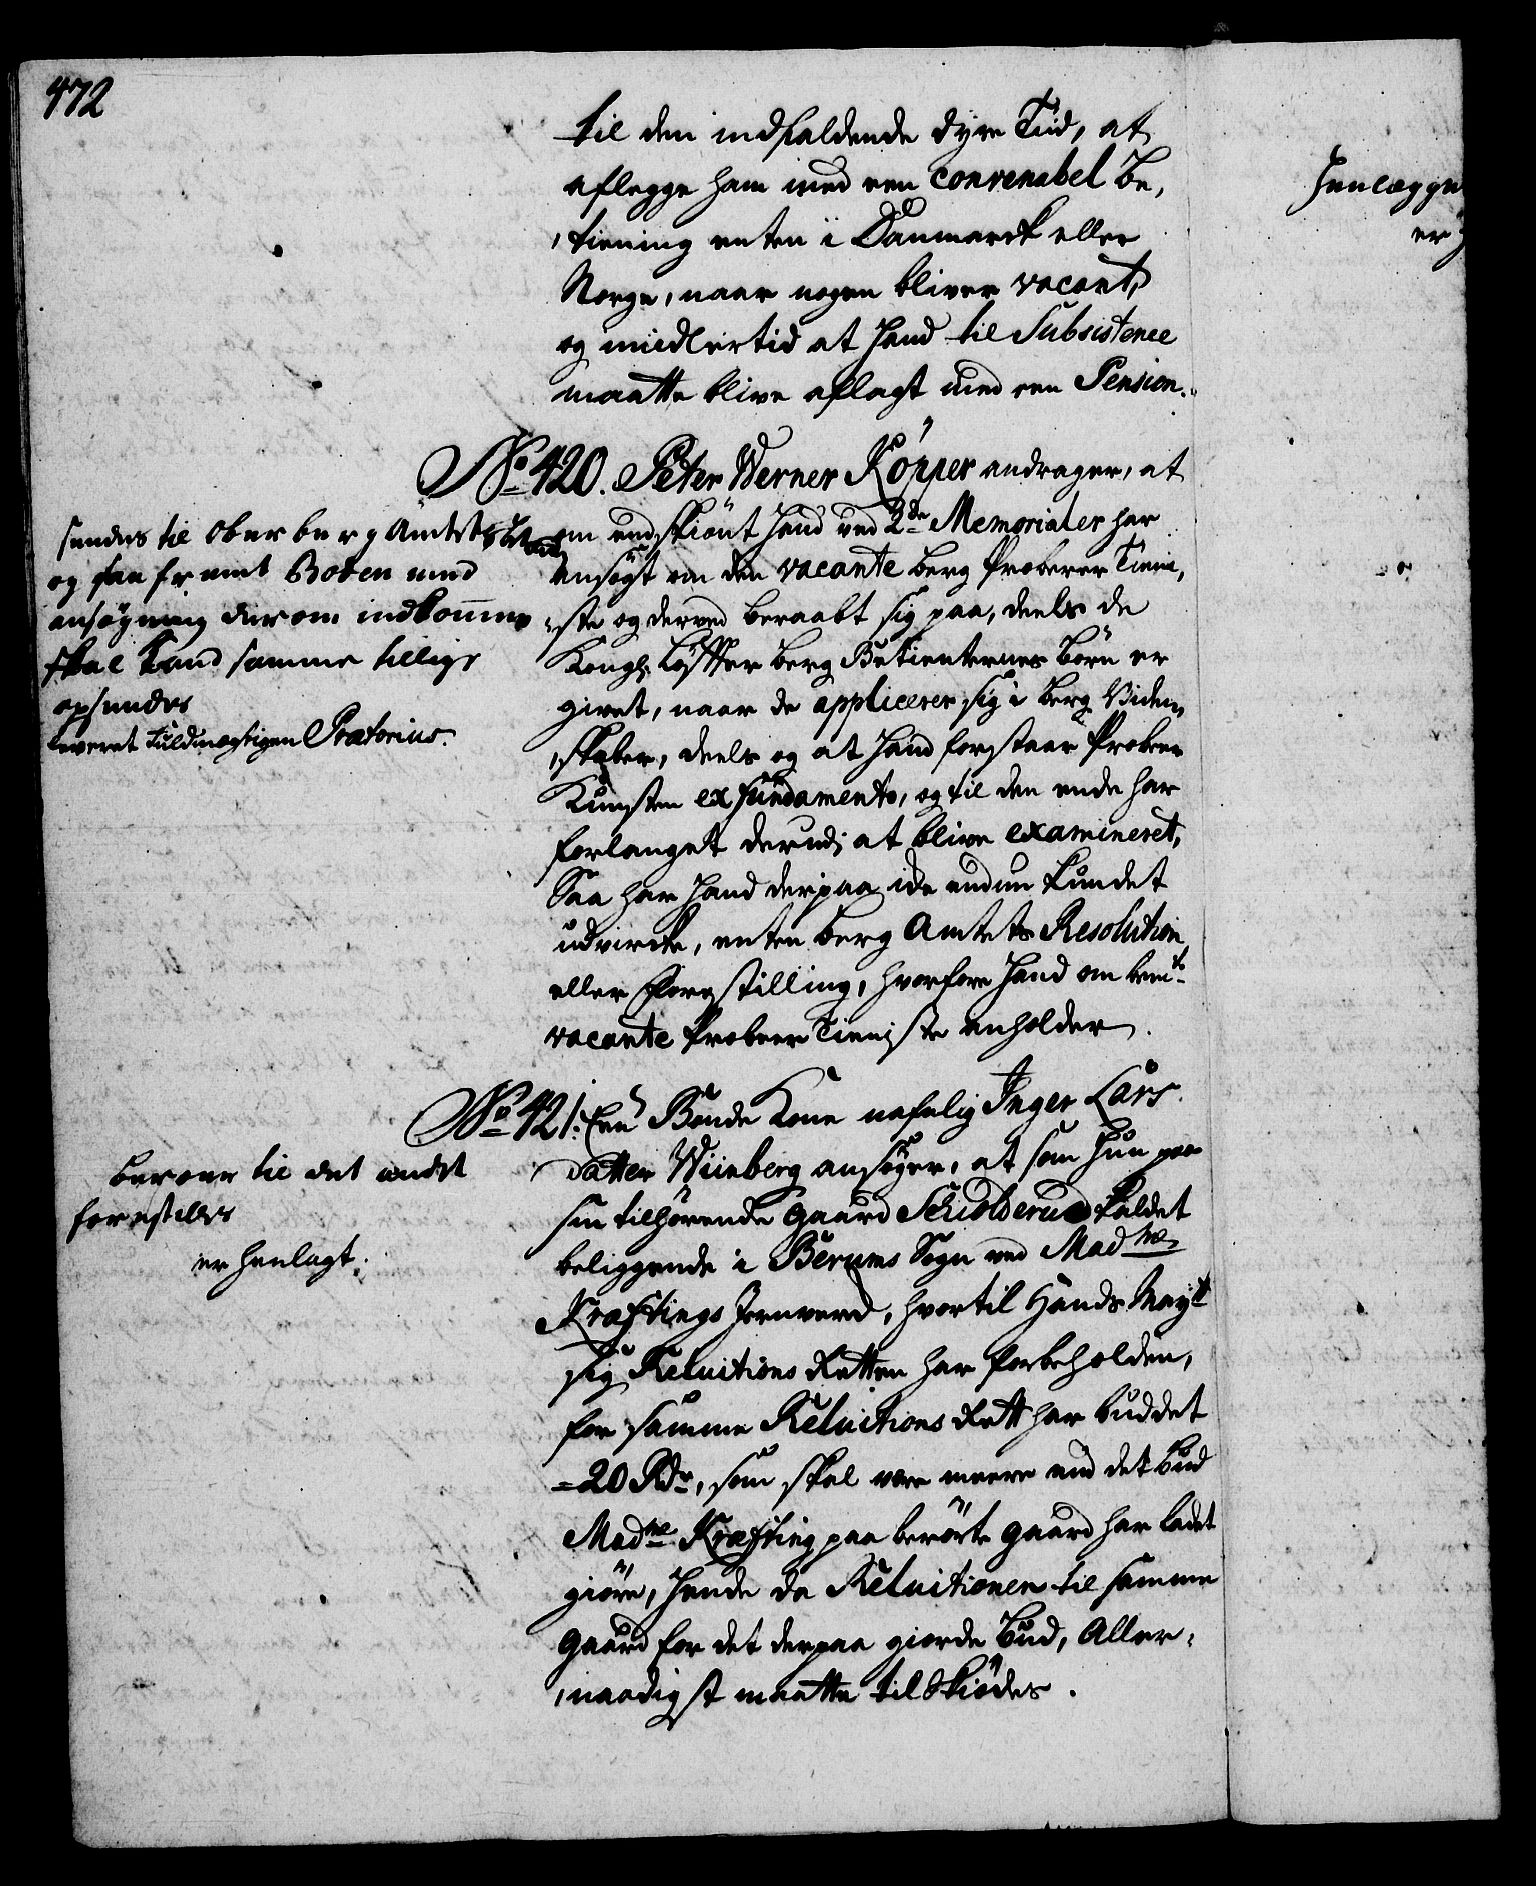 472
til den indfaldende dyre Tiid, at
aflegge ham med een convenabel Be,
,tiening enten i Danmarck eller
Norge, naar nogen bliver vacant,
og midlertid at Hand til Subsistence
maatte blive aflagt med een Pension.
No 420. Peter Werner Köpper andrager, at
om endskiönt Hand ved 2de Memorialer har
ansögt om den vacante Berg Proberer Tieni,
,ste og derved beraabt sig paa, deels de
Kongl: Löfter Berg Betienternes Börn er
givet, naar de applicerer sig i Berg Viden,
,skaber, deels og at Hand forstaar Probeer
Kunsten ex fundamento, og til den ende har
forlanget derudi at blive examineret,
Saa har Hand derpaa icke endnu kundet
udvircke, enten Berg Amtets Resolution
eller Forestilling, hvorfore Hand om bemte
vacante Probeer Tieniste anholder.
sendes til Ober berg Amtets
og saafremt Boden med
ansøgning derom indkomme
skal Hand samme tillige
opsendes
leveret Fuldmægtigen Prætorius.
No 421. Een Bonde Kone nafnlig Inger Lars
datter Wiinberg ansöger, at som Hun paa
sin tilhörende Gaard Sckiolderud kaldet
beliggende i Berums Sogn ved Madme
Kræftings Jernverck, hvortil Hands Maytt
sig Reluitions Retten har forbeholden,
for samme Reluitions Rett har buddet
=20 Rdr, som skal være meere end det Bud
Madme Kræfting paa berörte Gaard har ladet
giöre, Hende da Reluitionen til samme
Gaard for det derpaa giorde Bud, Aller,
,naadigst maatte tilskiödes.
beroer til det andet
forestilles
er henlagt.
Henlægges
er